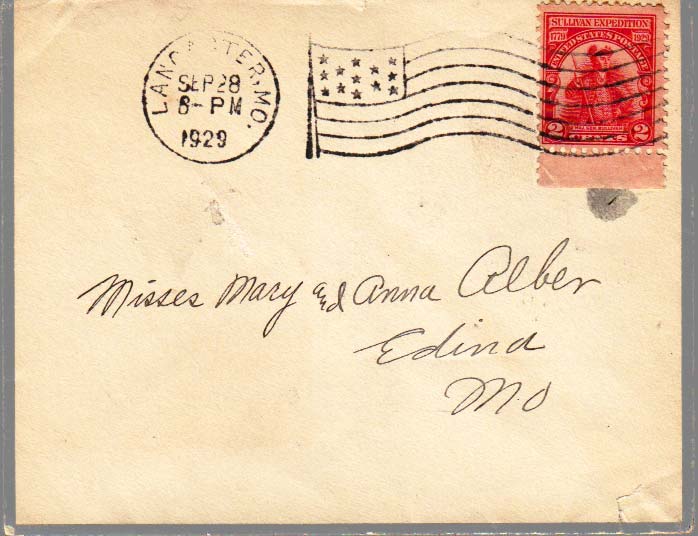 LANCASTER, MO.
SEP 28
8-PM
1929
SULLIVAN EXPEDITION
1779 1929
UNITED STATES POSTAGE
MAJ. GEN. SULLIVAN
2 CENTS 2
Misses Mary and Anna Alber
Edina
Mo